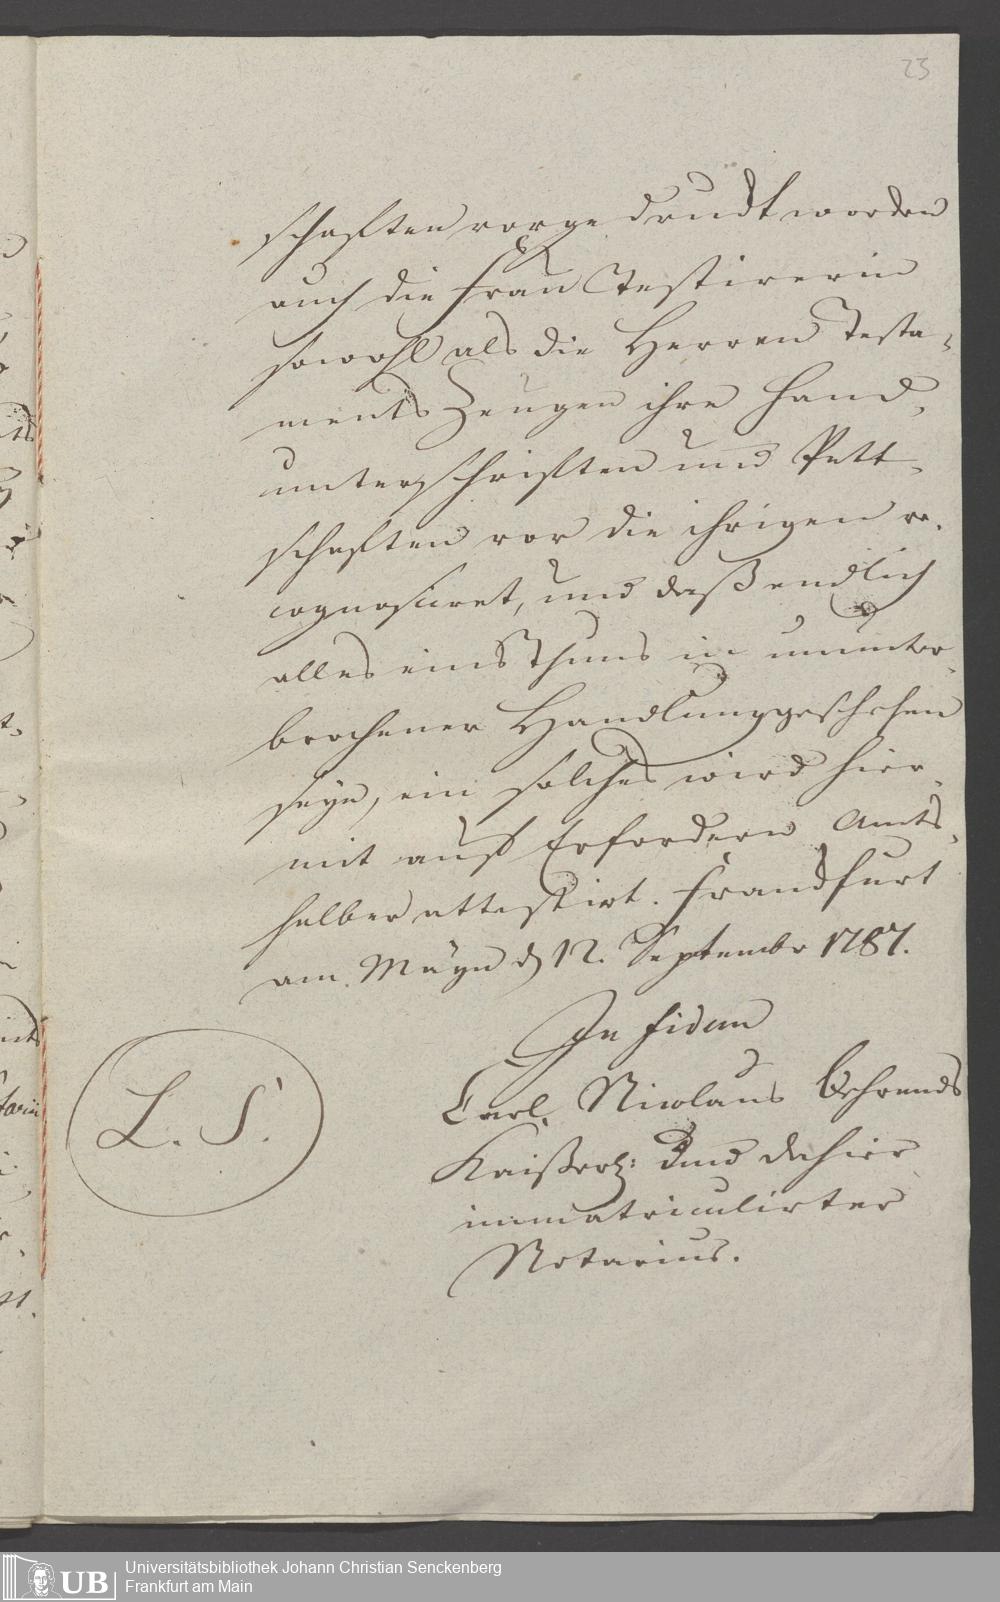 23
schafften vorgedruckt worden
auch die Frau Testirerin
sowohl als die Herren Testa-
ments Zeugen ihre Hand-
unterschrifften und Pett-
schafften vor die ihrigen re-
cognosciret, und daß endlich
alles eins Thuns in ununter-
brochener Handlung geschehen
seye, ein solches wird hier-
mit auff Erfordern Amts-
halber attestirt. Franckfurt
am Mayn d 12. Septembr 1787.
In fidem
Carl Nicolaus Behrends
L. S.
Kaißerl: und dahier
immatriculirter
Notarius.
UB Universitätsbibliothek Johann Christian Senckenberg
Frankfurt am Main